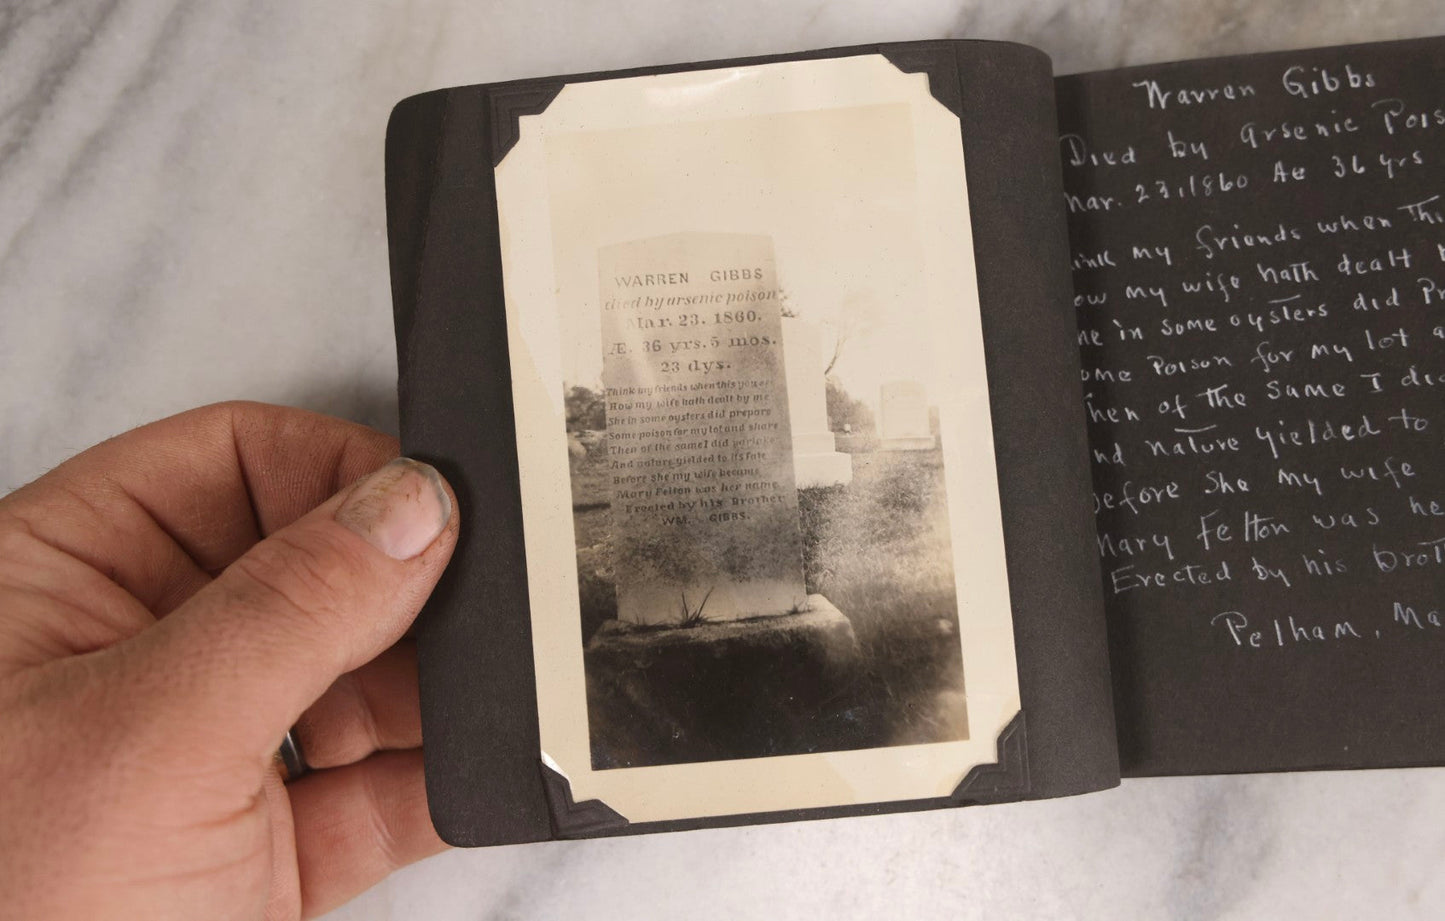 WARREN GIBBS
died by arsenic poison
Mar. 23. 1860.
Æ. 36 yrs. 5 mos.
23 dys.
Think my friends when this you see
How my wife hath dealt by me
She in some oysters did prepare
Some poison for my lot and share
Then of the same I did partake
And nature yielded to its fate
Before she my wife became
Mary Felton was her name
Erected by his Brother
WM. GIBBS.
Warren Gibbs
Died by arsenic Pois
Mar. 23, 1860 Ae 36 yrs
ink my friends when Thi
ow my wife hath dealt
he in some oysters did Pr
ome Poison for my lot a
hen of the same I did
nd nature yielded to
before she my wife
Mary Felton was he
Erected by his brot
Pelham, Ma